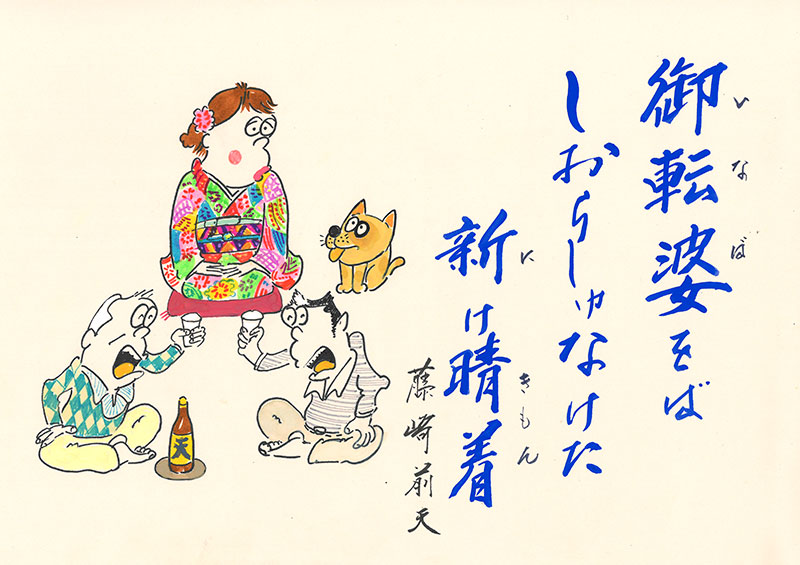 御転婆をば
いなぼ
しおらしゅなけた
新け晴着
に
きもん
藤崎前天
天